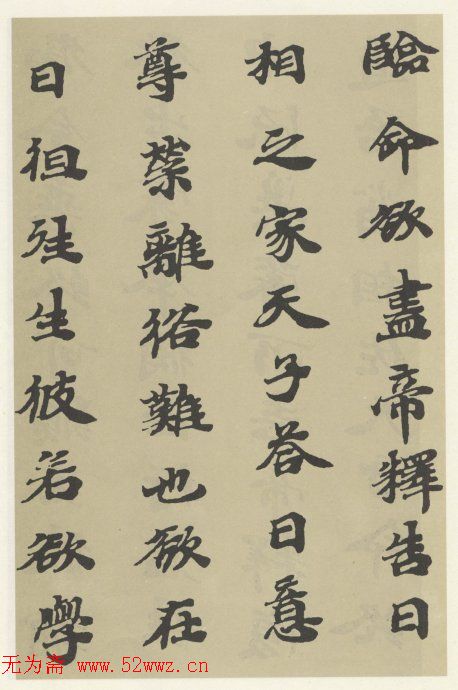 臨命欲盡帝釋告曰
相之家天子答曰意
尊榮離俗難也欲在
日徃生彼若欲學
无为斋 www.52wwz.cn